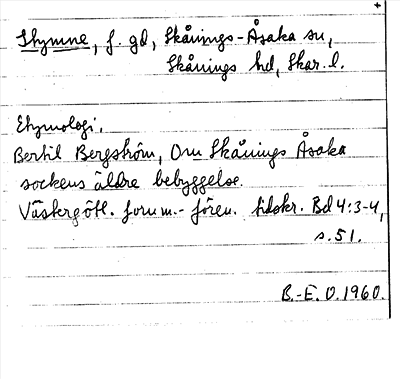 Skymne, f. gd, Skånings-Åsaka sn,
Skånings hd, Skar. l.
Etymologi.
Bertil Bergström, Om Skånings Åsaka
sockens äldre bebyggelse.
Västergötl. fornm.-fören. tidskr. Bd 4:3-4,
s. 51.
B.-E. O. 1960.